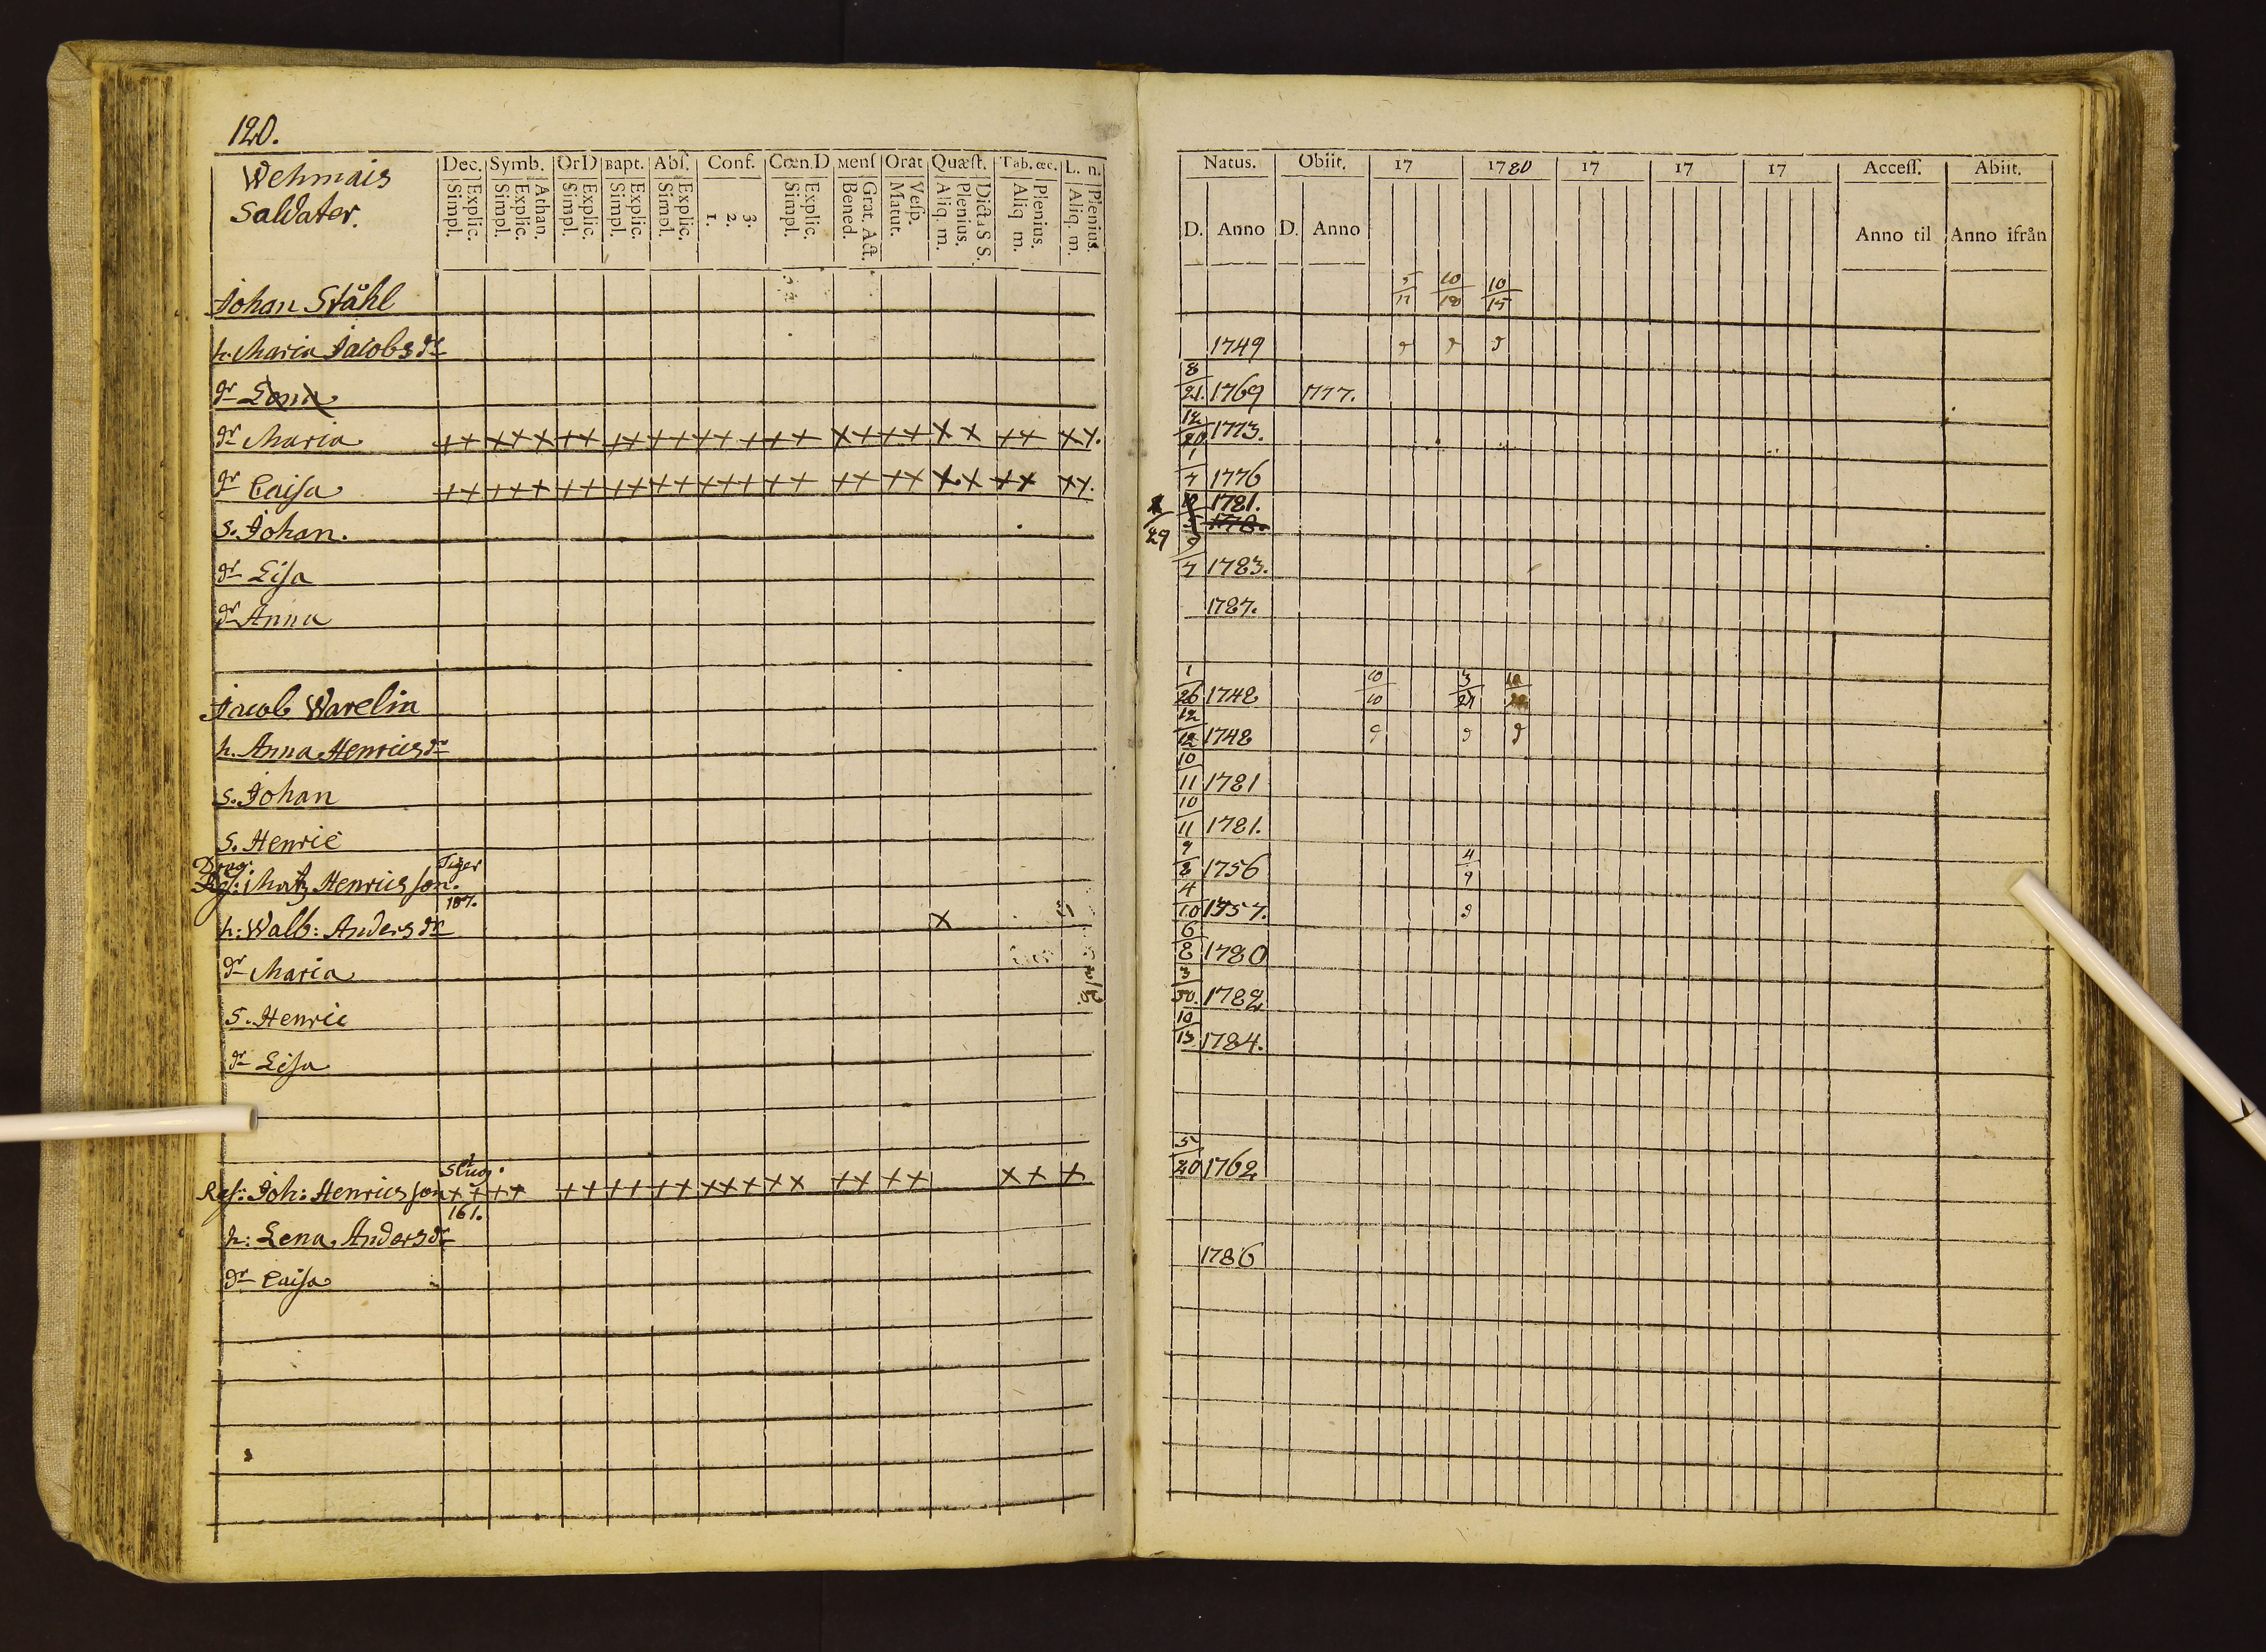 120.
Wehmais
Saldater.
Dec. Symb. Or D Bapt. Abſ. Conf. Cœn.D. Menſ Orat Quæſt. Tab. œc. L. n.
Simpl. Explic. Simpl. Explic. Athan. Simpl. Explic. Simpl. Explic. Simpl. Explic. 1. 2. 3. Simpl. Explic. Bened. Grat. Act. Matut. Veſp. Aliq. m. Plenius. Dicta S S. Aliq m. Plenius. Aliq. m. Plenius.
Johan Ståhl
h. Maria Jacobs dr
dr Lena
dr Maria ++ +++ ++ ++ ++ +++ ++ ++ ++ x x ++ xx.
dr Caisa ++ +++ ++ ++ ++ +++ ++ ++ ++ x x ++ xx.
s. Johan.
dr Lisa
dr Anna
Jacob Warelin
h. Anna Henrics dr
s. Johan
s. Henric
Drag: Tiger
Rgs: Matz Henrics son.
107.
h: Walb: Anders dr x
dr Maria
s. Henric
dr Lisa
Slug.
Res: Joh: Henrics son ++++ ++ ++ ++ +++ ++ ++ ++ x+ x
161.
h: Lena Anders dr
dr Caisa
Natus. Obiit. 17 1780 17 17 17 Acceſſ. Abiit.
D. Anno D. Anno Anno til Anno ifrån
5/11 10/18 10/15
1749
8/21. 1769 1777.
12/20 1773.
1/7 1776
1781.
1778.
29
9/7 1783.
1787.
1/26 1748 10/10 3/24
12/12 1748
10/11 1781
10/11 1781.
9/8 1756 4/9
4/10 1757.
6/8 1780
3/30. 1782
10/13 1784.
5/20 1762
1786